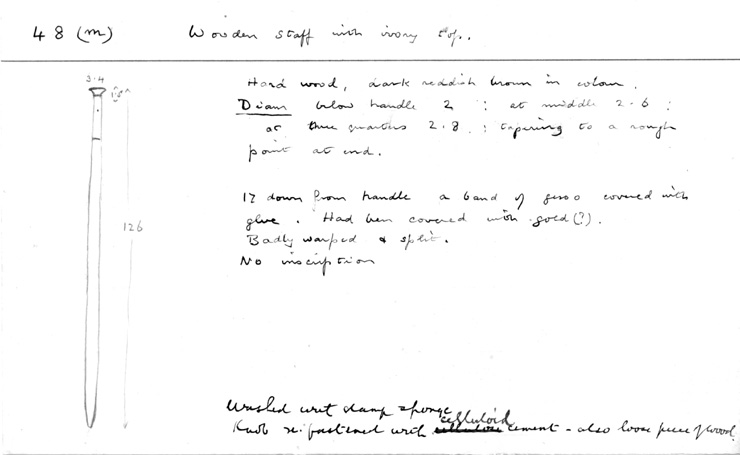 48 (m) Wooden staff with ivory top.
3.4
1.5
126
Hard wood, dark reddish brown in colour.
Diam below handle 2 : at middle 2.6 :
at three quarters 2.8 : tapering to a rough
point at end.
17 down from handle a band of gesso covered with
glue. Had been covered with gold (?).
Badly warped & split.
No inscription
Washed with damp sponge
Knob re-fastened with celluloid cement - also loose piece of wood.